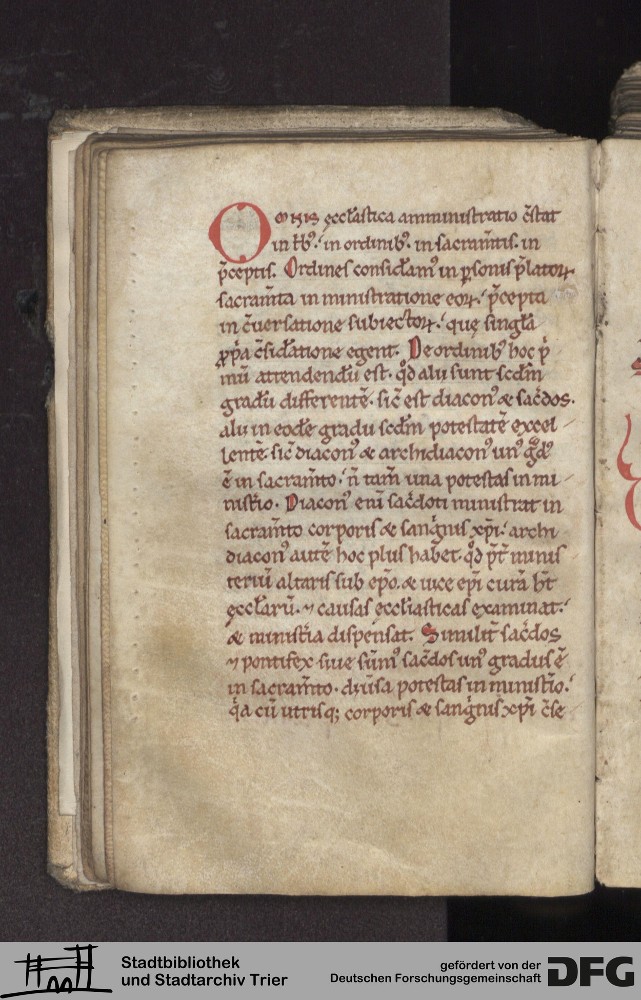 Om̅is ęccl̅astica amministratio c̅stat
in t͛b᷒. in ordinib᷒. in sacram̅tis. in
p̅ceptis. Ordines considam᷒ in ꝑsonis p̅latoꝝ
sacram̅ta in ministratione eoꝝ. p̅cepta
in c̅uersatione subiectoꝝ. que̜ singl̅a
ꝓp̅a c̅sid̅atione egent. De ordinib᷒ hoc p̅
mu̅ attendendu̅ est. qd̅ alii sunt scd̅m
gradu̅ differente̅. sic̅ est diacon᷒ & sac̅dos.
alii in eode̅ gradu scd̅m potestate̅ excel
lente̅. sic̅ diacon᷒ & archidiacon᷒ un᷒ gͣd᷒
e̅ in sacram̅to. n̅ tam̅ una potestas in mi
nist̅io. Diacon᷒ eni̅ sac̅doti ministrat in
sacram̅to corporis & sangͥnis xp̅i. archi
diacon᷒ aute̅ hoc plus habet. qd̅ p̅t̅ minis
teriu̅ altaris sub ep̅o. & uice ep̅i cura̅ h̅t
ęccl̅aru̅. ⁊ causas eccli̅asticas examinat.
& minist̅ia dispensat. Similit̅ sac̅dos
⁊ pontifex siue su̅m᷒ sac̅dos un᷒ gradus e̅
in sacram̅to. diu̅sa potestas in minist̅io.
qͣa cu̅ utrisq; corporis & sangͥnis xp̅i c̅se
Stadtbibliothek
und Stadtarchiv Trier
gefördert von der
Deutschen Forschungsgemeinschaft
DFG